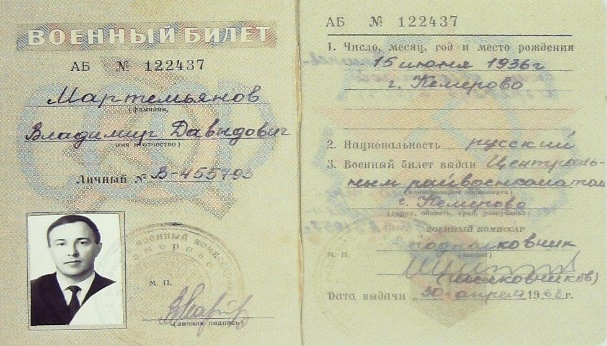 ВОЕННЫЙ БИЛЕТ
АБ № 122437
Мартемьянов
(фамилия)
Владимир Давыдович
(имя и отчество)
Личный № В-455793
М. П.
(личная подпись)
АБ № 122437
1. Число, месяц, год и место рождения
15 июня 1936г
г. Кемерово
2. Национальность русский
3. Военный билет выдан Централь-
ным райвоенкоматом
г. Кемерово
(город, область, край, республика)
ВОЕННЫЙ КОМИССАР
подполковник
М. П.
Дата выдачи 30 апреля 1962 г.